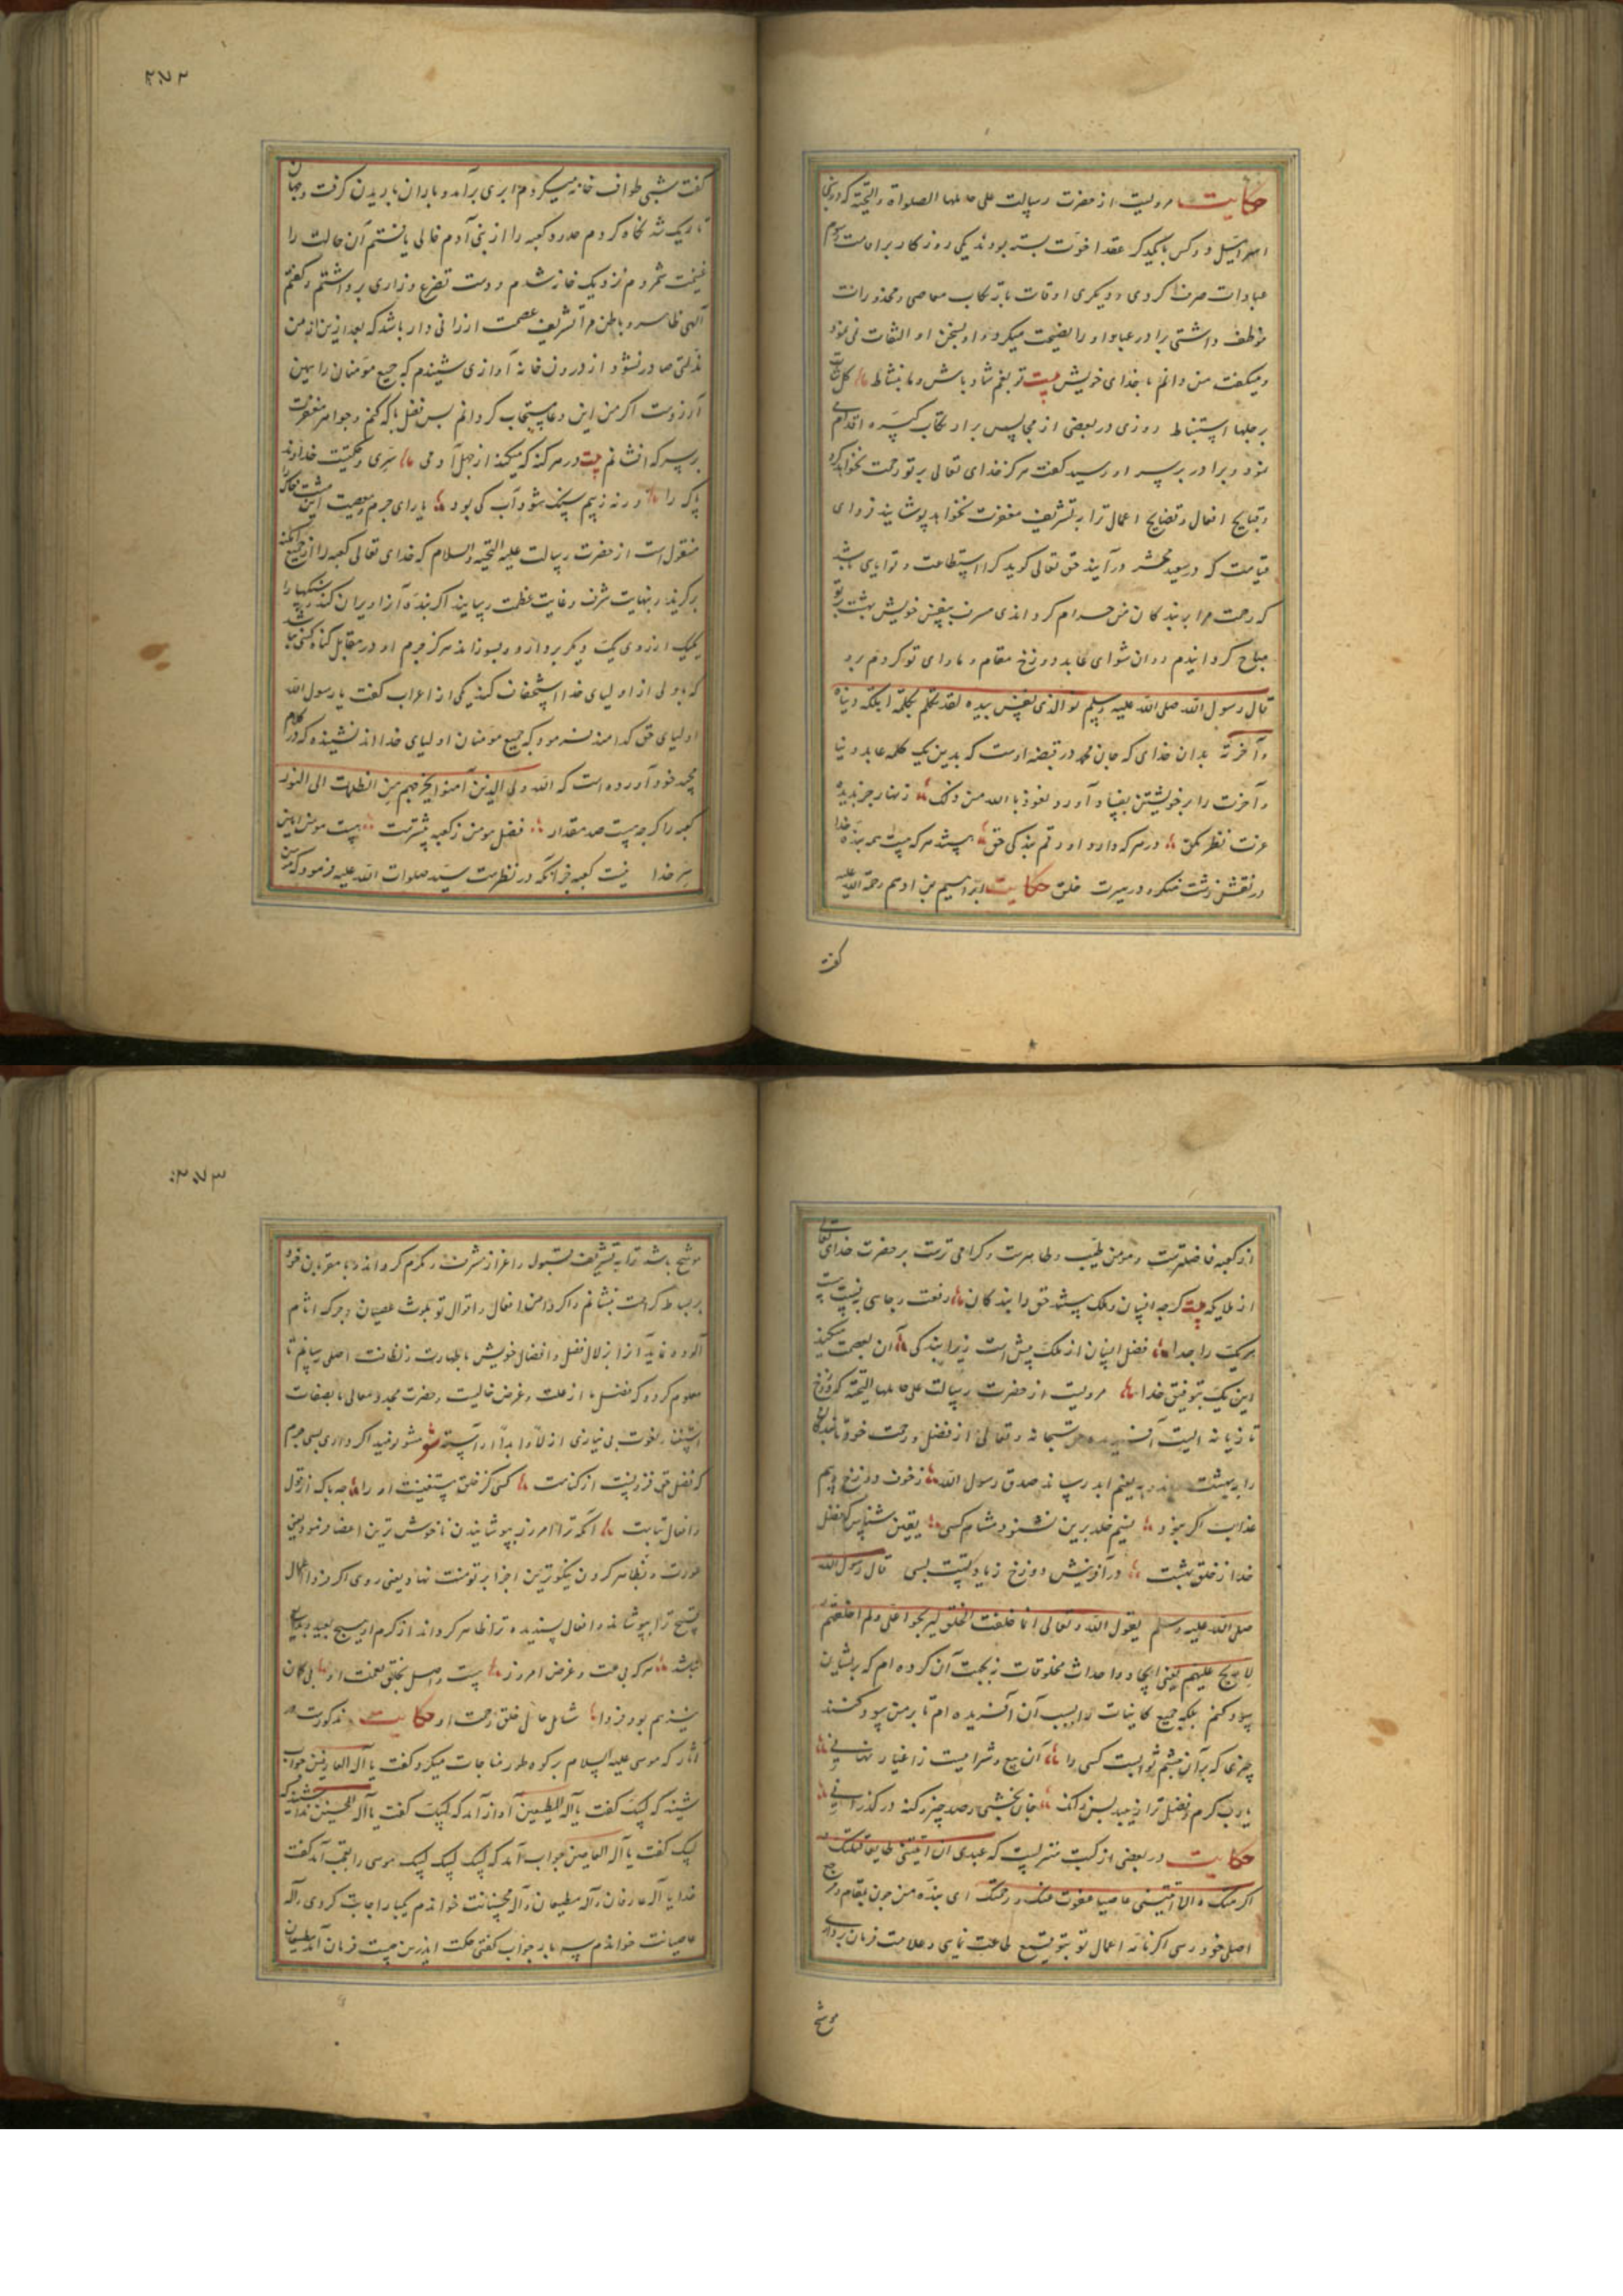 حکایت مرویست از حضرت رسالت علی حاملها الصلواة والتحیة که در بنی
اسرائیل دو کس با یکدیگر عقد اخوت بسته بودند یکی روزگار بر اقامت رسوم
عبادات صرف کردی و دیگری اوقات بارتکاب معاصی و محذورات
موظف داشتی برادر عابد او را نصیحت میکرد و او بسخن او التفات نمی نمود
و میکفت من دانم با خدای خویش بیت تو بغم شاد باش و ما بنشاط کل
بر جلها استنباط روزی در بعضی از مجالس برادر بارتکاب کبیره اقدام
نمود و برادر بر سر او رسید کفت هرکز خدای تعالی بر تو رحمت نخواهد کرد
و قبایح افعال و فضایح اعمال ترا به تشریف مغفرت نخواهد پوشانید فردای
قیامت که در صعید محشر درآیند حق تعالی کوید کرا استطاعت و توانایی باشد
که رحمت مرا بر بندکان من حرام کرداند ای مسرف بنفس خویش بهشت بر تو
مباح کردانیدم و ان شو ای عابد دوزخ مقام و ماوای تو کردم برو
قال رسول الله صلی الله علیه وسلم فو الذی نفسی بیده لقد تکلم بکلمة اهلکت دنیاه
وآخرته بدان خدای که جان محمد در قبضه اوست که بدین یک کلمه عابد دنیا
و آخرت را بر خویشتن بفساد آورد نعوذ بالله من ذلک زنهار جز بدیده
عزت نظر مکن در هرکه دارد او رقم بندکی حق هستند هرکه هست همه بنده خدا
در نقش زشت منکر و در سیرت خلق حکایت ابراهیم بن ادهم رحمة الله علیه
کفت
٢٧٢
کفت شبی طواف خانه میکردم ابری برآمد و باران باریدن کرفت و جهان
تاریک شد نکاه کردم حدود کعبه را از بنی آدم خالی یافتم آن حالت را
غنیمت شمردم نزدیک خانه شدم و دست تضرع و زاری برداشتم و کفتم
آلهی ظاهر و باطن مرا تشریف عصمت ارزانی دار باشد که بعد ازین از من
زلتی صادر نشود از درون خانه آوازی شنیدم که جمیع مومنان را همین
آرزوست اکر من این دعا مستجاب کردانم پس فضل با که کنم و جواهر مغفرت
بر سر که افشانم بیت در هر کنه که میکند از جهل آدمی سری و حکمتیست خداوند
پاک را ورنه ز بیم سنک شود آب کی بود یارای جرم و معصیت این مشت خاک را
منقول است از حضرت رسالت علیه التحیة والسلام که خدای تعالی کعبه را از جمیع امکنه
برکزید و بنهایت شرف و غایت عظمت رسانید اکر بنده آنرا ویران کند و سنکها را
یکیک از روی یک دیکر بردارد و بسوزاند هرکز جرم او در مقابل کناه کسی نباشد
که با ولی از اولیای خدا استخفاف کند یکی از اعراب کفت یا رسول الله
اولیای حق کدامند فرمود که جمیع مومنان اولیای خدااند نشنیده که در کلام
مجید خود آورده است که الله ولی الذین آمنوا یخرجهم من الظلمات الی النور
کعبه را کرچه هست صد مقدار فضل مومن ز کعبه پیشترست هست مومن امین
سر خدا نیست کعبه جز آنکه در نظرست سید صلوات الله علیه فرمود که مومن
از کعبه فاضلترست و مومن طیب و طاهرست و کرامی ترست بر حضرت خدای تعالی
از ملایکه بیت کرچه انسان و ملک هستند حق را بندکان رفعت و جاهی به نسبت هست
هر یک را جدا فضل انسان از ملک بیش است زیرا بندکی آن بعصمت میکند
این یک بتوفیق خدا مرویست از حضرت رسالت علی حاملها التحیة که دوزخ
تازیانه الیست آفریده حق سبحانه و تعالی از فضل و رحمت خود تا بندکان
را به بهشت و به نعیم ابد رساند صدق رسول الله ز خوف دوزخ و بیم
عذاب اکر نبود نسیم خلد برین نشنود مشام کسی یقین شناس که فضل
خدا ز خلق بهشت در آفرینش دوزخ زیادتست بسی قال رسول الله
صلی الله علیه وسلم یقول الله تعالی انما خلقت الخلق لیربحوا علی ولم اخلقهم
لاربح علیهم یعنی ایجاد و احداث مخلوقات نجهت آن کرده ام که بریشان
سود کنم بلکه جمیع کاینات را بسبب آن آفریده ام تا بر من سود کنند
چیزی که بر آن چشم ثوابست کسی را آن بیع و شرا نیست ز اغیار نهانی
یارب کرم و فضل ترا نیست کران جان بخشی و صد چیز و کنه درکذرانی
حکایت در بعضی از کتب منزلست که عبدی ان اتیتنی طایعا قبلتک و
اکرمتک و ان اتیتنی عاصیا عفوت عنک و رحمتک ای بنده من چون بمقام و مرجع
اصلی خود رسی اکر نامه اعمال تو بتوقیع طاعت نمایی و علامت فرمان برداری
موشح
٢٧٣
موشح باشد ترا به تشریف قبول و اعزاز مشرف و مکرم کردانم و با مقربان خود
بر بساط کرامت بنشانم و اکر دامن افعال و اقوال تو بلوث عصیان و چرک اثام
آلوده نماید آنرا بزلال فضل و افضال خویش بطهارت و نظافت اصلی رسانم تا
معلوم کردد که فضل ما از علت و غرض خالیست و حضرت مجد و معالی ما بصفات
استغنا و نعوت بی نیازی ازلا و ابدا آراسته شعر مشو نومید اکر داری بسی جرم
که فضل حق فزونست از کناهت کسی کز خلق مستغنیست او را چه باک از قول
و افعال تباهت آنکه ترا امروز بپوشانیدن ناخوش ترین اعضا فرمود یعنی
عورت و بظاهر کردن نیکوترین اجزا بر تو منت نهاد یعنی روی اکر فردا اعمال
قبیح ترا بپوشاند و افعال پسندیده ترا ظاهر کرداند از کرم او هیچ بعید و بدیع
نباشد هرکه بی علت و غرض امروز هست واصل بخلق نعمت او بی کمان
شبهه هم بود فردا شامل حال خلق رحمت او حکایت مذکورست در
آثار که موسی علیه السلام بر کوه طور مناجات میکرد کفت یا آله العارفین جواب
شنید که لبیک کفت یا آله المطیعین آواز آمد که لبیک کفت یا آله المحسنین ندا شنید که
لبیک کفت یا آله العاصین جواب آمد که لبیک لبیک لبیک موسی را تعجب آمد کفت
خدایا آله عارفان و آله مطیعان و آله محسنانت خواندم یکبار اجابت کردی و آله
عاصیانت خواندم سه بار جواب کفتی حکمت اندرین چیست فرمان آمد مطیعان